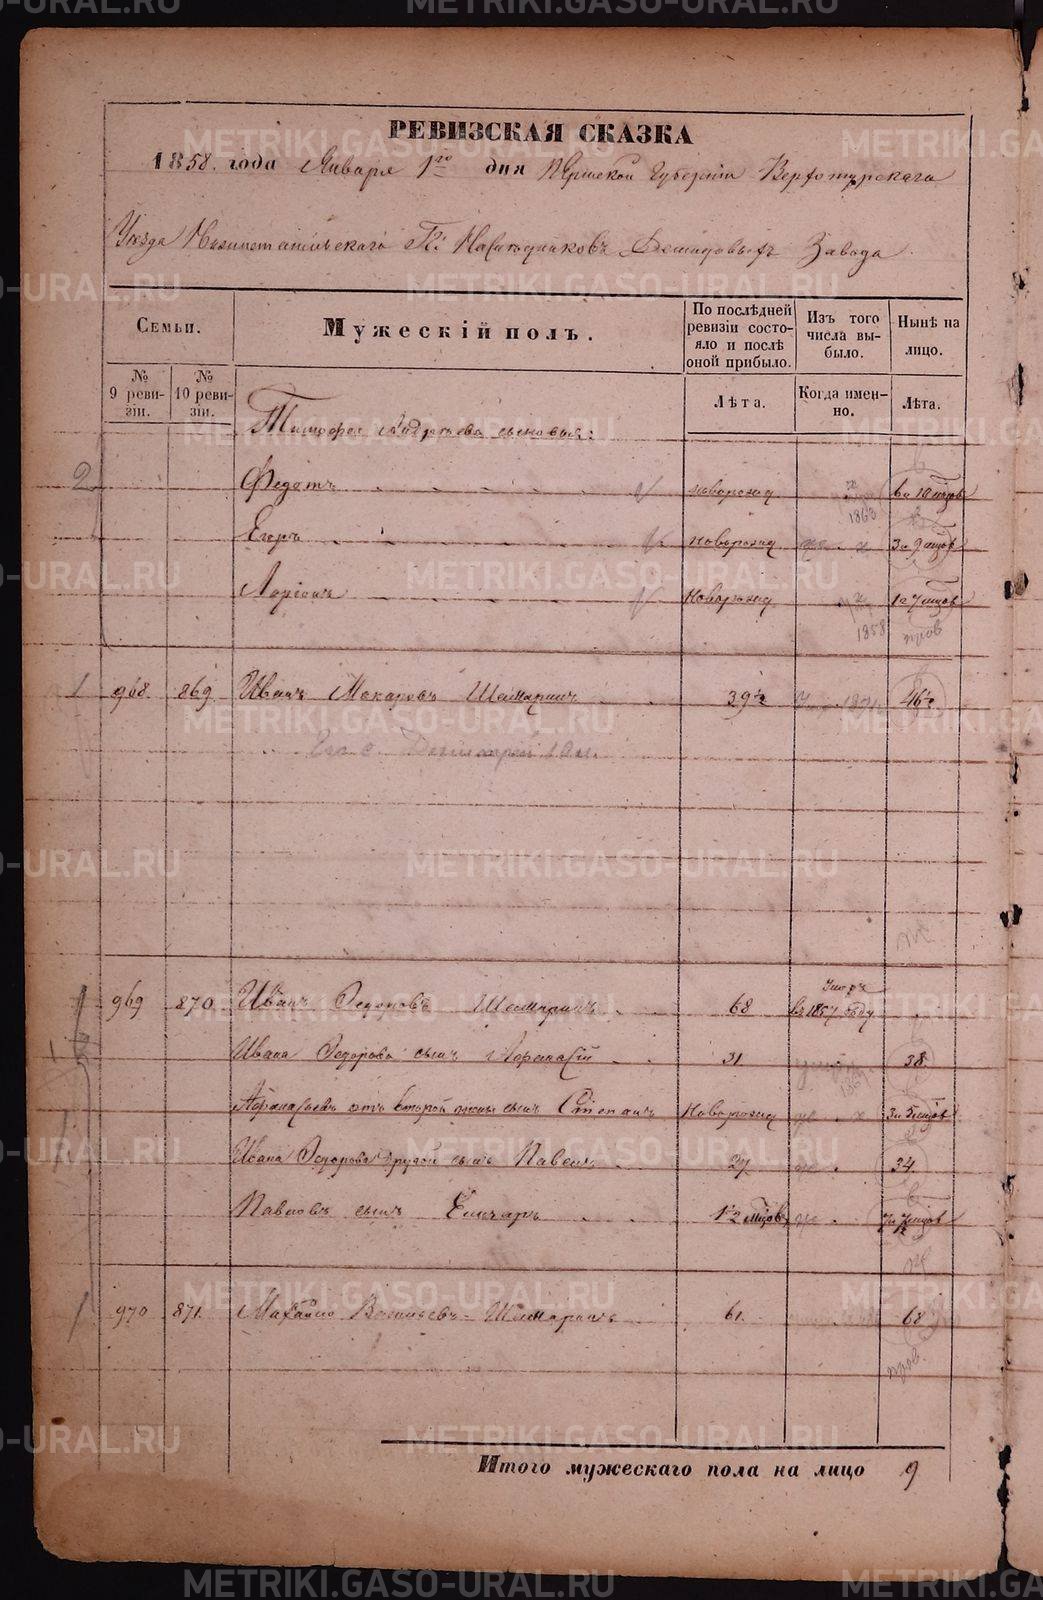 РЕВИЗСКАЯ СКАЗКА
1858. года Января 1го дня Пермской Губернии Верхотурскаго
Уѣзда Нижнетагильскаго Гг. Наслѣдниковъ Демидовыхъ Завода
Семьи.
Мужескій полъ.
По послѣдней ревизіи состояло и послѣ оной прибыло.
Изъ того числа выбыло.
Нынѣ на лицо.
№ 9 ревизіи.
№ 10 ревизіи.
Лѣта.
Когда именно.
Лѣта.
Тимофея Андреева сыновья:
2 Федотъ новорожд 1863 6 и 10 мцов
Егоръ новорожд 3 и 9 мцов
Ларіонъ новорожд 1858 1 и 7 мцов
1 968 869 Иванъ Макаровъ Шамаринъ 39 1/2 1871 46 1/2
1 969 870 Иванъ Федоровъ Шамаринъ 68 Умеръ въ 1857 году
Ивана Федорова сынъ Афанасій 31. 38.
Афанасьевъ отъ второй жены сынъ Степанъ новорожд 3 и 5 мцов
Ивана Федорова другой сынъ Павелъ 27 34.
Павловъ сынъ Елизаръ 1/2 мцов 7 и 1/2 мцов
1 970 871. Михайло Васильевъ Шамаринъ 61. 68
Итого мужескаго пола на лицо 9
METRIKI.GASO-URAL.RU